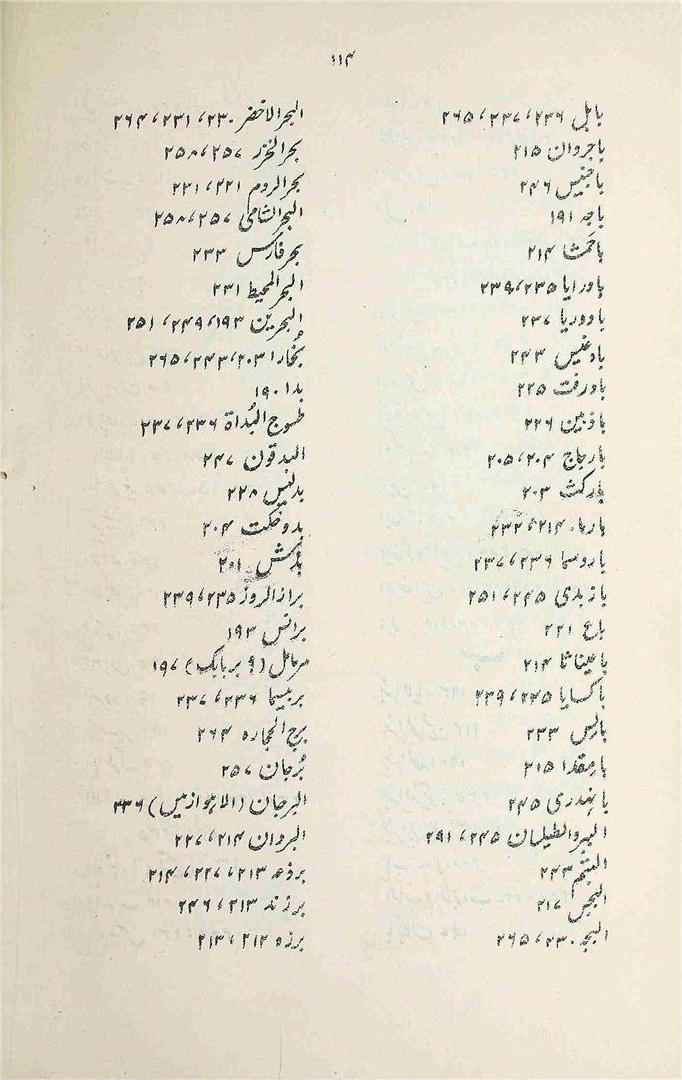 ۱۱۴
بابل ۲۳۶، ۲۳۷، ۲۶۵
باجروان ۲۱۵
باجنیس ۲۴۶
باجه ۱۹۱
باحمشا ۲۱۴
بادرایا ۲۳۵، ۲۳۹
بادوریا ۲۳۷
بادغیس ۲۴۳
بادرفت ۲۲۵
باذبین ۲۲۶
بارجاج ۲۰۴، ۲۰۵
بارکث ۲۰۳
باربا ۲۱۴، ۲۳۲
باروسما ۲۳۶، ۲۳۷
بازبدی ۲۴۵، ۲۵۱
باع ۲۲۱
باعیناثا ۲۱۴
باکسایا ۲۳۵، ۲۳۹
بالس ۲۳۳
بامقدا ۲۱۵
باہندری ۲۴۵
الببر والطیلسان ۲۴۵، ۲۹۱
البتم ۲۴۳
البجس ۲۱۷
البجہ ۲۳۰، ۲۶۵
البحر الاخضر ۲۳۰، ۲۳۱، ۲۶۴
بحر الخزر ۲۵۷، ۲۵۸
بحر الروم ۲۲۱، ۲۳۱
البحر الشامی ۲۵۷، ۲۵۸
بحر فارس ۲۳۳
البحر المحیط ۲۳۱
البحرین ۱۹۳، ۲۴۹، ۲۵۱
بُخارا ۲۰۳، ۲۴۳، ۲۶۵
بدا ۱۹۰
طسوج البُداۃ ۲۳۶، ۲۳۷
البدقون ۲۴۷
بدلیس ۲۲۸
بدوخکت ۲۰۴
بذش ۲۰۱
براز الروز ۲۳۵، ۲۳۹
برانس ۱۹۳
(؟ بربابک) ۱۹۷
بربیسما ۲۳۶، ۲۳۷
برج الحجارہ ۲۶۴
بُرجان ۲۵۷
البرجان (الاہواز میں) ۲۳۶
البروان ۲۱۴، ۲۲۷
برذعہ ۲۱۳، ۲۲۷، ۲۱۴
برزند ۲۱۳، ۲۴۶
برزہ ۲۱۲، ۲۱۳